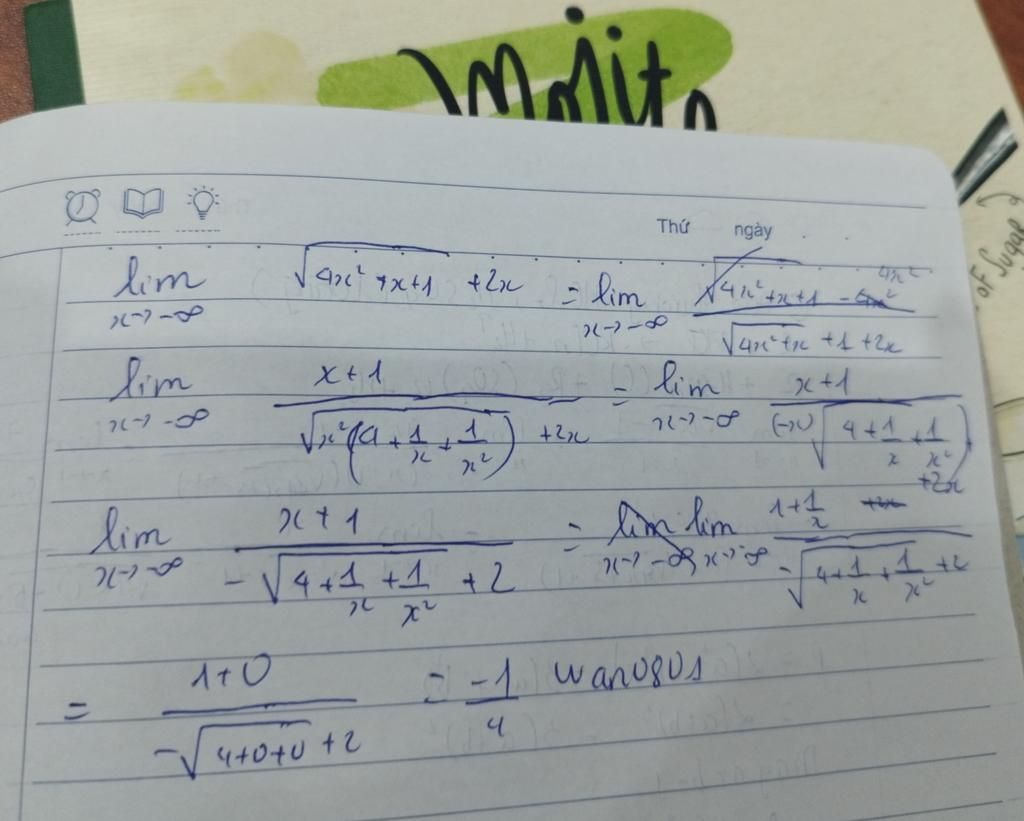 Mojito
Thứ ngày
lim x→-∞ √(4x²+x+1) +2x = lim x→-∞ (√4x²+x+1 - 4x²)/(√(4x²+x) +1 +2x)
lim x→-∞ (x+1)/(√(x²(4+1/x+1/x²)) +2x) = lim x→-∞ (x+1)/((-x)√(4+1/x+1/x²) +2x)
lim x→-∞ (x+1)/(-√(4+1/x+1/x²) +2) = lim x→-∞ (1+1/x)/(-√(4+1/x+1/x²) +2)
= (1+0)/(-√(4+0+0) +2) = -1/4 wan0801
OF Sugar